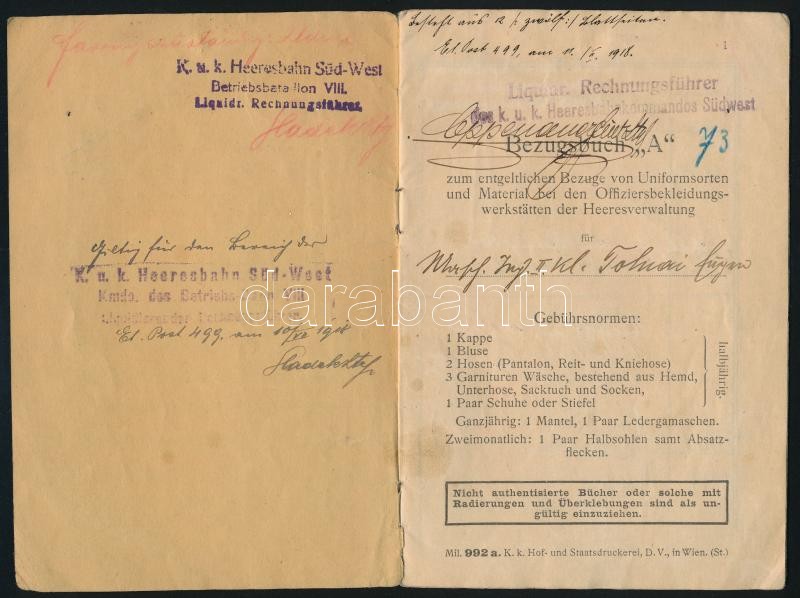 K. u. k. Heeresbahn Süd-West
Betriebsbataillon VIII.
Liquidr. Rechnungsführer.
Giltig für den Bereich der
K. u. k. Heeresbahn Süd-West
Kmdo. des Betriebs VIII
Et. Post 499, am 10/VI 1918
Besteht aus 12 /: zwölf :/ Blattseiten.
Et. Post 499, am 11./6. 1918.
1
Liquidr. Rechnungsführer
des k. u. k. Heeresbahnkommandos Südwest
Bezugsbuch „A"
73
zum entgeltlichen Bezuge von Uniformsorten
und Material bei den Offiziersbekleidungs-
werkstätten der Heeresverwaltung
für
Masch. Ing. II. Kl. Tolnai Eugen
darabanth
Gebührsnormen:
1 Kappe
1 Bluse
2 Hosen (Pantalon, Reit- und Kniehose)
3 Garnituren Wäsche, bestehend aus Hemd,
Unterhose, Sacktuch und Socken,
1 Paar Schuhe oder Stiefel
halbjährig.
Ganzjährig: 1 Mantel, 1 Paar Ledergamaschen.
Zweimonatlich: 1 Paar Halbsohlen samt Absatz-
flecken.
Nicht authentisierte Bücher oder solche mit
Radierungen und Überklebungen sind als un-
gültig einzuziehen.
Mil. 992 a. K. k. Hof- und Staatsdruckerei, D. V., in Wien. (St.)